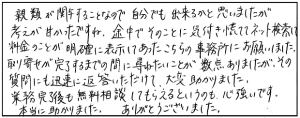 親類が関与することなので自分でも出来るかと思いましたが
考えが甘かったですね、途中でそのことに気付き慌ててネット検索して
料金のことが明確に表示してあったこちらの事務所にお願いしました。
取り寄せが完了するまでの間に尋ねたいことが数点ありましたが、その
質問にも迅速に返答いただけて大変助かりました。
業務完了後も無料相談してもらえるというのも心強いです。
本当に助かりました。 ありがとうございました。